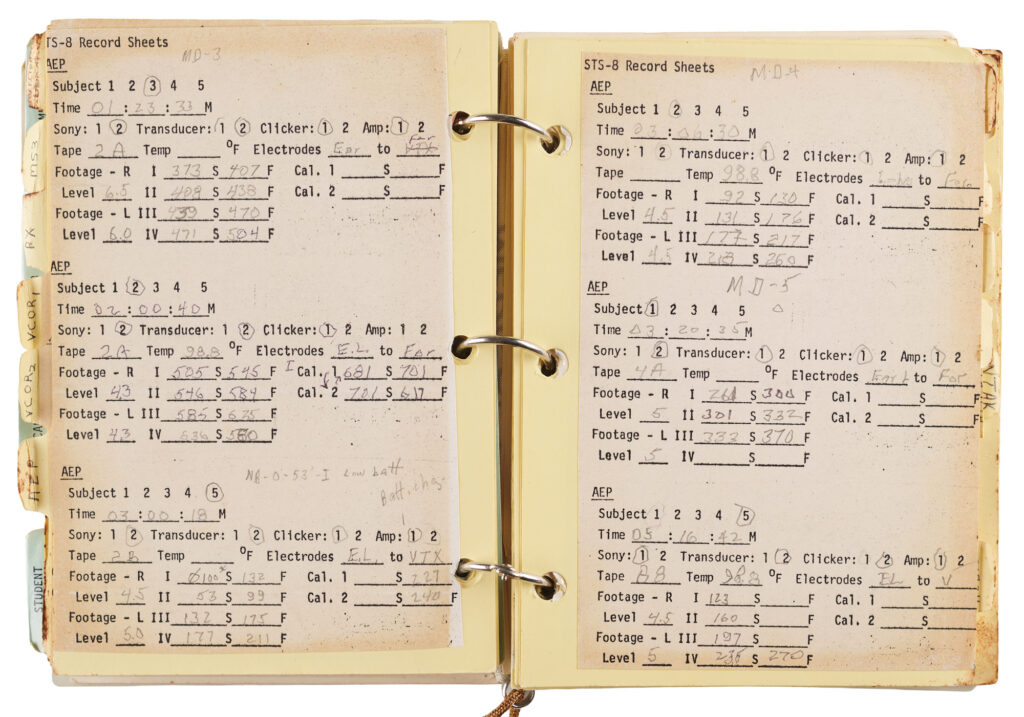 STS-8 Record Sheets
MD-3
AEP
Subject 1 2 3 4 5
Time 01 : 23 : 33 M
Sony: 1 2 Transducer: 1 2 Clicker: 1 2 Amp: 1 2
Tape 2A Temp °F Electrodes Ear to Far
Footage - R I 373 S 407 F Cal. 1 S F
Level 6.5 II 408 S 438 F Cal. 2 S F
Footage - L III 439 S 470 F
Level 6.0 IV 471 S 504 F
AEP
Subject 1 2 3 4 5
Time 02 : 00 : 40 M
Sony: 1 2 Transducer: 1 2 Clicker: 1 2 Amp: 1 2
Tape 2A Temp 98.8 °F Electrodes E.L to Far
Footage - R I 505 S 545 F I Cal. 1 681 S 701 F
Level 43 II 546 S 584 F Cal. 2 701 S F
Footage - L III 585 S 625 F
Level 43 IV S F
AEP
NB-0-53'-I Low batt
Batt. chg.
Subject 1 2 3 4 5
Time 03 : 00 : 18 M
Sony: 1 2 Transducer: 1 2 Clicker: 1 2 Amp: 1 2
Tape 2B Temp °F Electrodes E.L. to VTX
Footage - R I S 132 F Cal. 1 S 227 F
Level 4.5 II 53 S 99 F Cal. 2 S 240 F
Footage - L III 132 S 175 F
Level 5.0 IV 177 S 211 F
M53
RX
VCOR1
VCOR2
AEP
STUDENT
STS-8 Record Sheets
MD-4
AEP
Subject 1 2 3 4 5
Time 03 : 06 : 30 M
Sony: 1 2 Transducer: 1 2 Clicker: 1 2 Amp: 1 2
Tape Temp 98.8 °F Electrodes to
Footage - R I 92 S 130 F Cal. 1 S F
Level 4.5 II 131 S 176 F Cal. 2 S F
Footage - L III 177 S 217 F
Level 4.5 IV 218 S 260 F
MD-5
AEP
Subject 1 2 3 4 5
Time 03 : 20 : 35 M
Sony: 1 2 Transducer: 1 2 Clicker: 1 2 Amp: 1 2
Tape 4A Temp °F Electrodes Ear L to For
Footage - R I 261 S 300 F Cal. 1 S F
Level 5 II 301 S 332 F Cal. 2 S F
Footage - L III 333 S 370 F
Level 5 IV S F
AEP
Subject 1 2 3 4 5
Time 05 : 16 : 42 M
Sony: 1 2 Transducer: 1 2 Clicker: 1 2 Amp: 1 2
Tape Temp 98.8 °F Electrodes EL to V
Footage - R I 123 S F Cal. 1 S F
Level 4.5 II 160 S F Cal. 2 S F
Footage - L III 197 S F
Level 5 IV 235 S 270 F